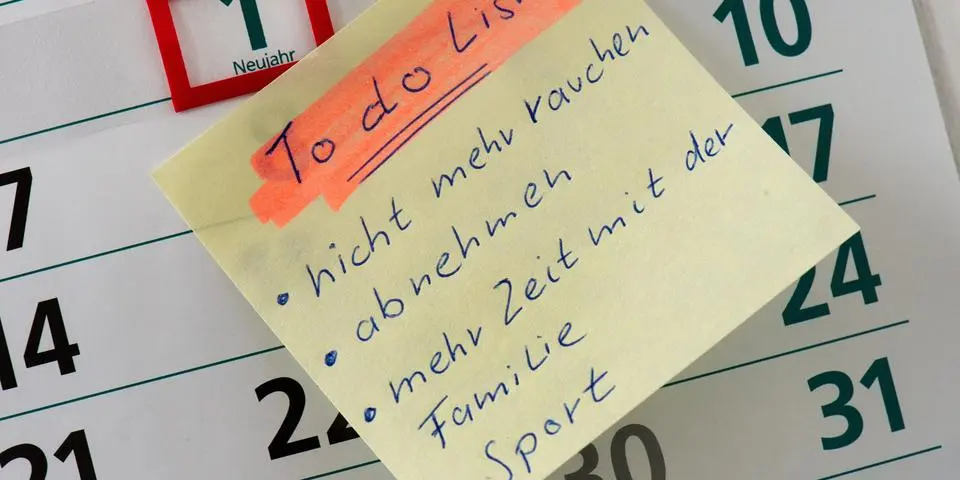 1
Neujahr
10
7
17
14
24
21
22
30
31
To do List
• nicht mehr rauchen
• abnehmen
• mehr Zeit mit der
Familie
Sport